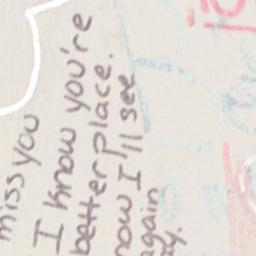 miss you
I know you're
better place.
now I'll see
again
ay.